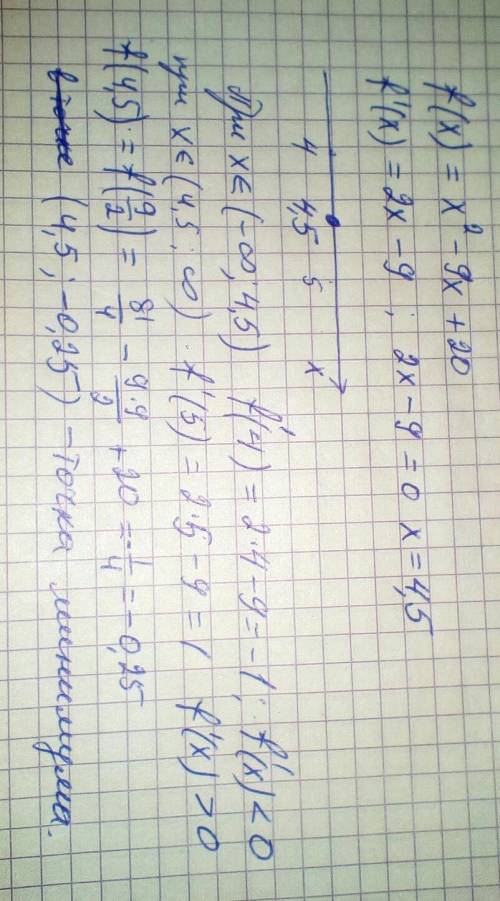 f(x) = x² - 9x + 20
f'(x) = 2x - 9 ; 2x - 9 = 0 x = 4,5
4 4,5 5 x
При x∈(-∞; 4,5) f'(4) = 2·4 - 9 = -1; f'(x) < 0
при x∈(4,5; ∞) f'(5) = 2·5 - 9 = 1 f'(x) > 0
f(4,5) = f(9/2) = 81/4 - 9·9/2 + 20 = -1/4 = -0,25
(4,5; -0,25) - точка минимума.